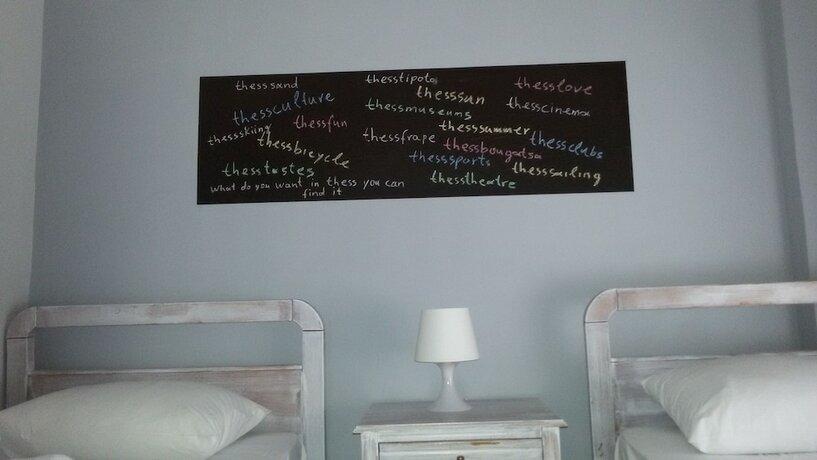 thesssand
thesstipota
thesslove
thessculture
thesssun
thesscinema
thessmuseums
thessskiing
thessfun
thesssummer
thessfrape
thessclubs
thessbicycle
thessbougatsa
thesssports
thesstastes
thesssailing
thesstheatre
what do you want in thess you can
find it